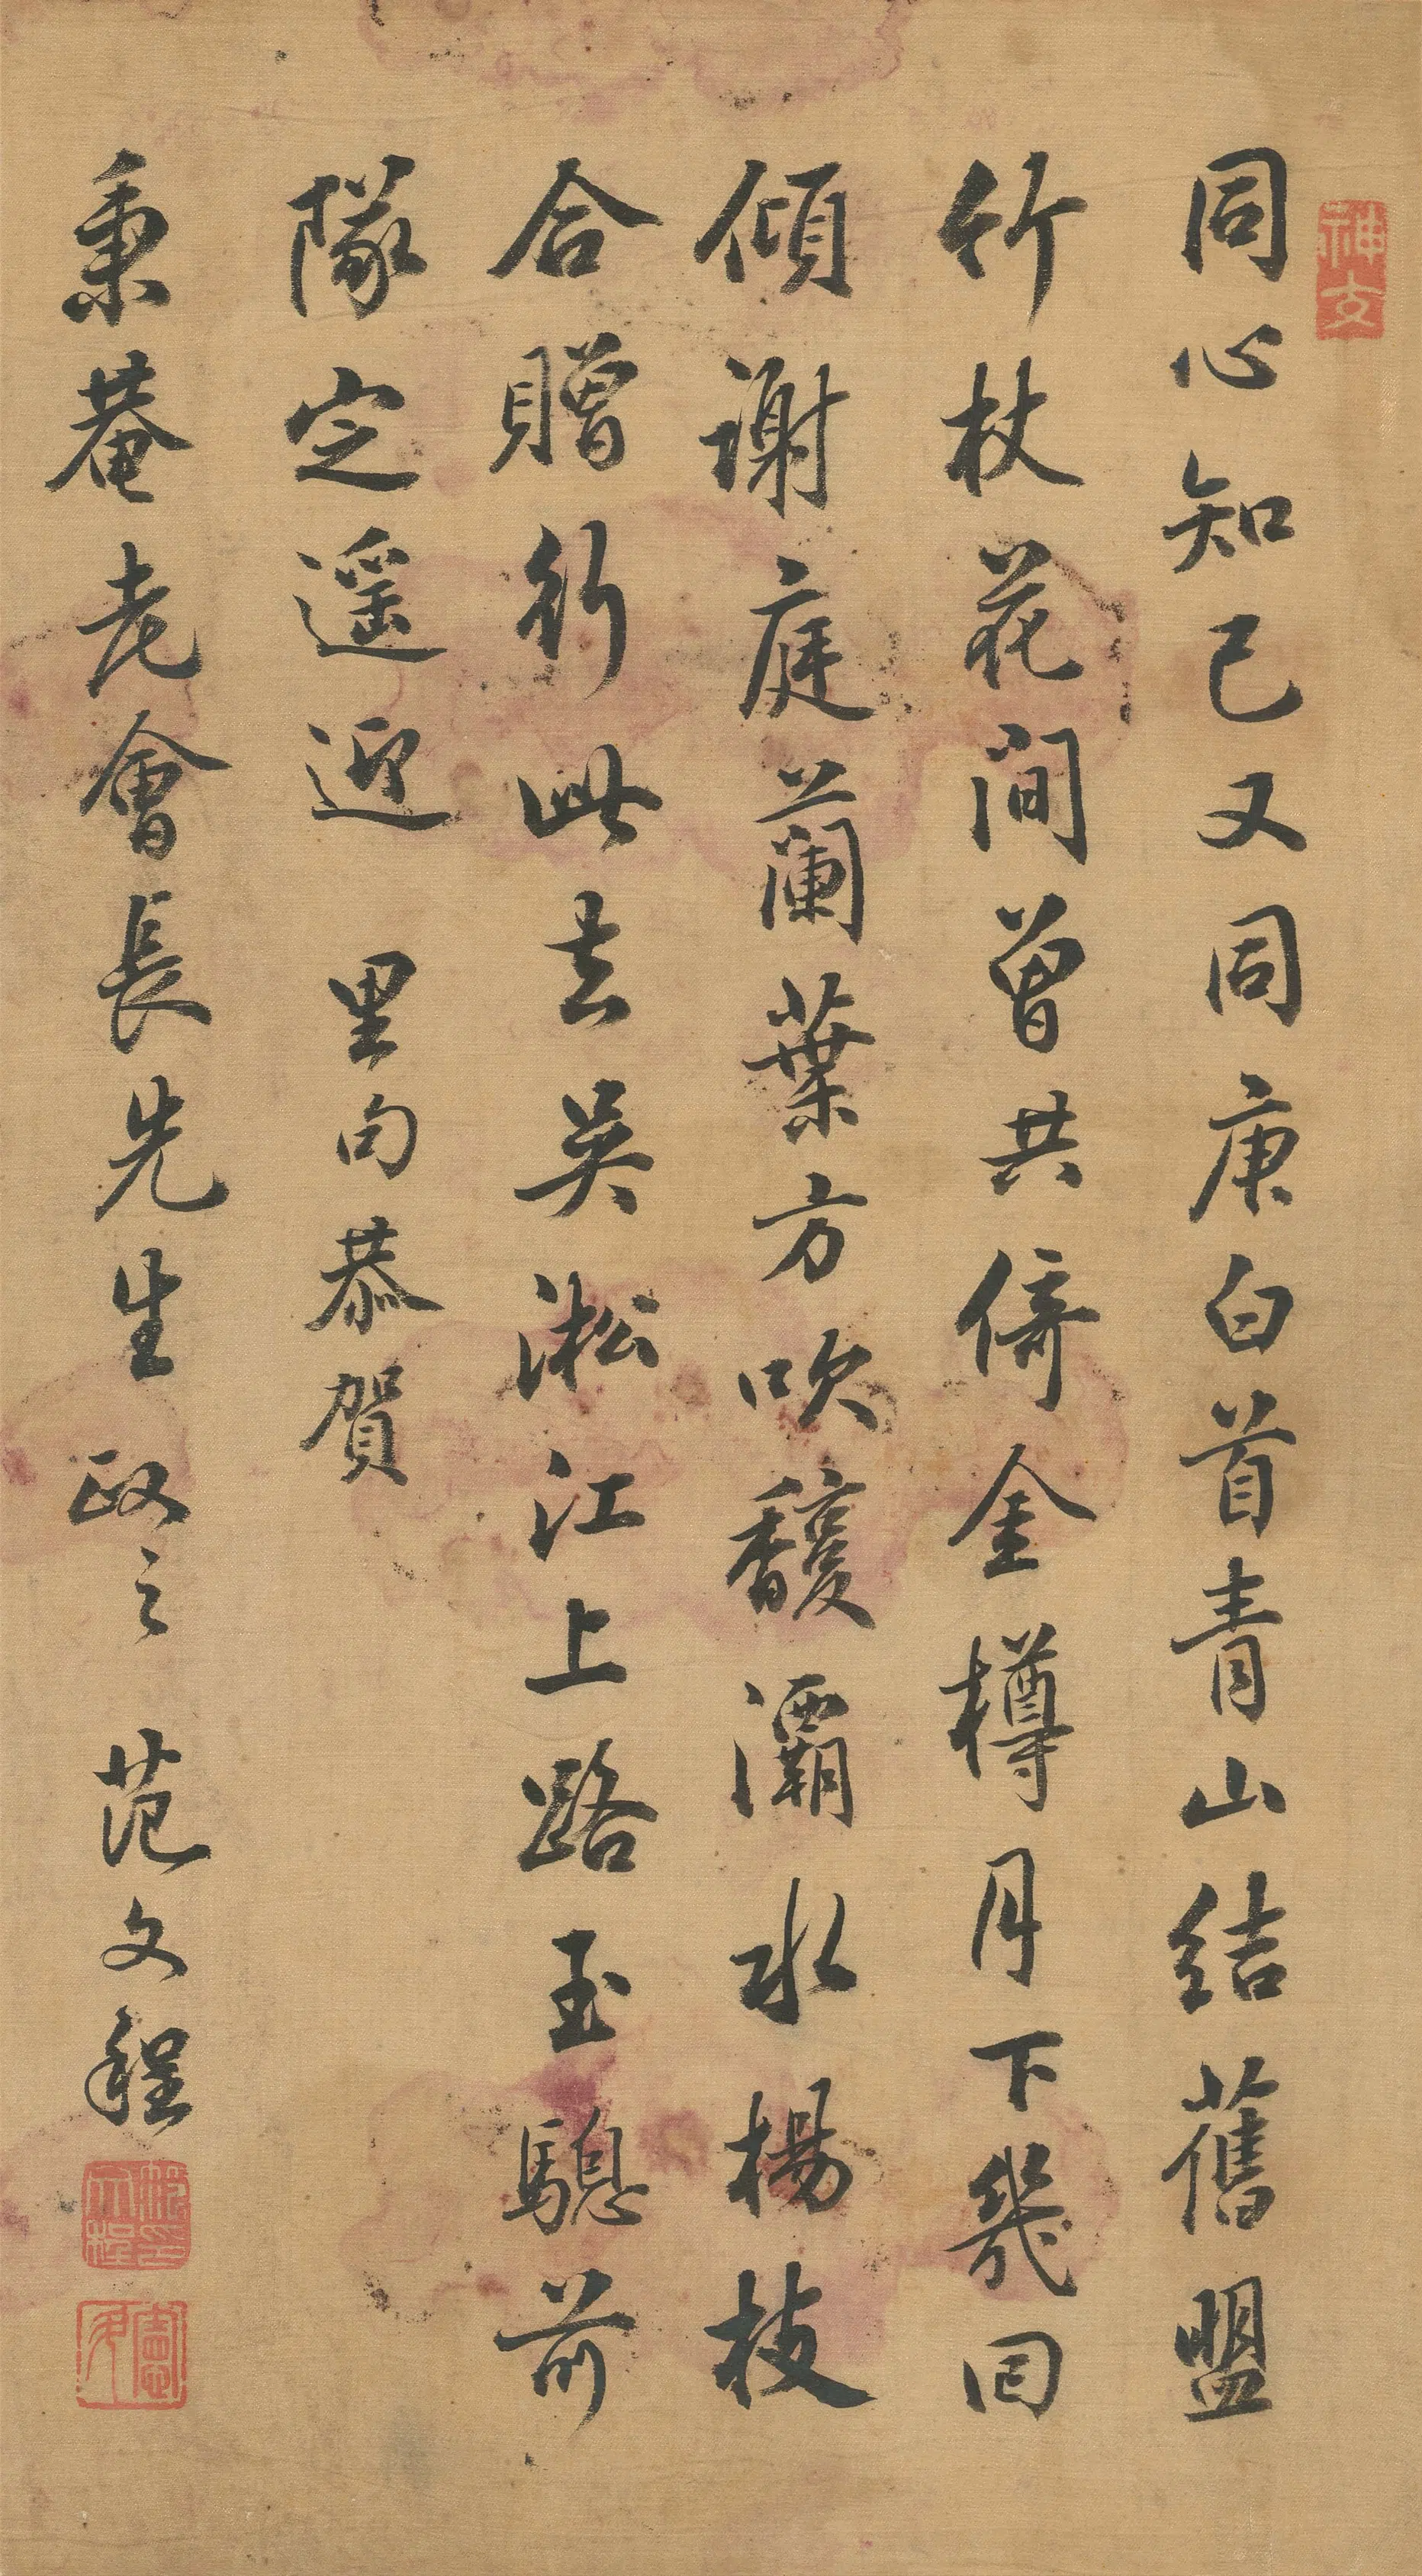 同心知己又同庚白首青山結舊盟
竹杖花間曾共倚金樽月下幾回
傾謝庭蘭葉方吹馥灞水楊枝
合贈行此去吳淞江上路玉驄前
隊定遥迎 里句恭賀
秉菴老會長先生政之 范文程